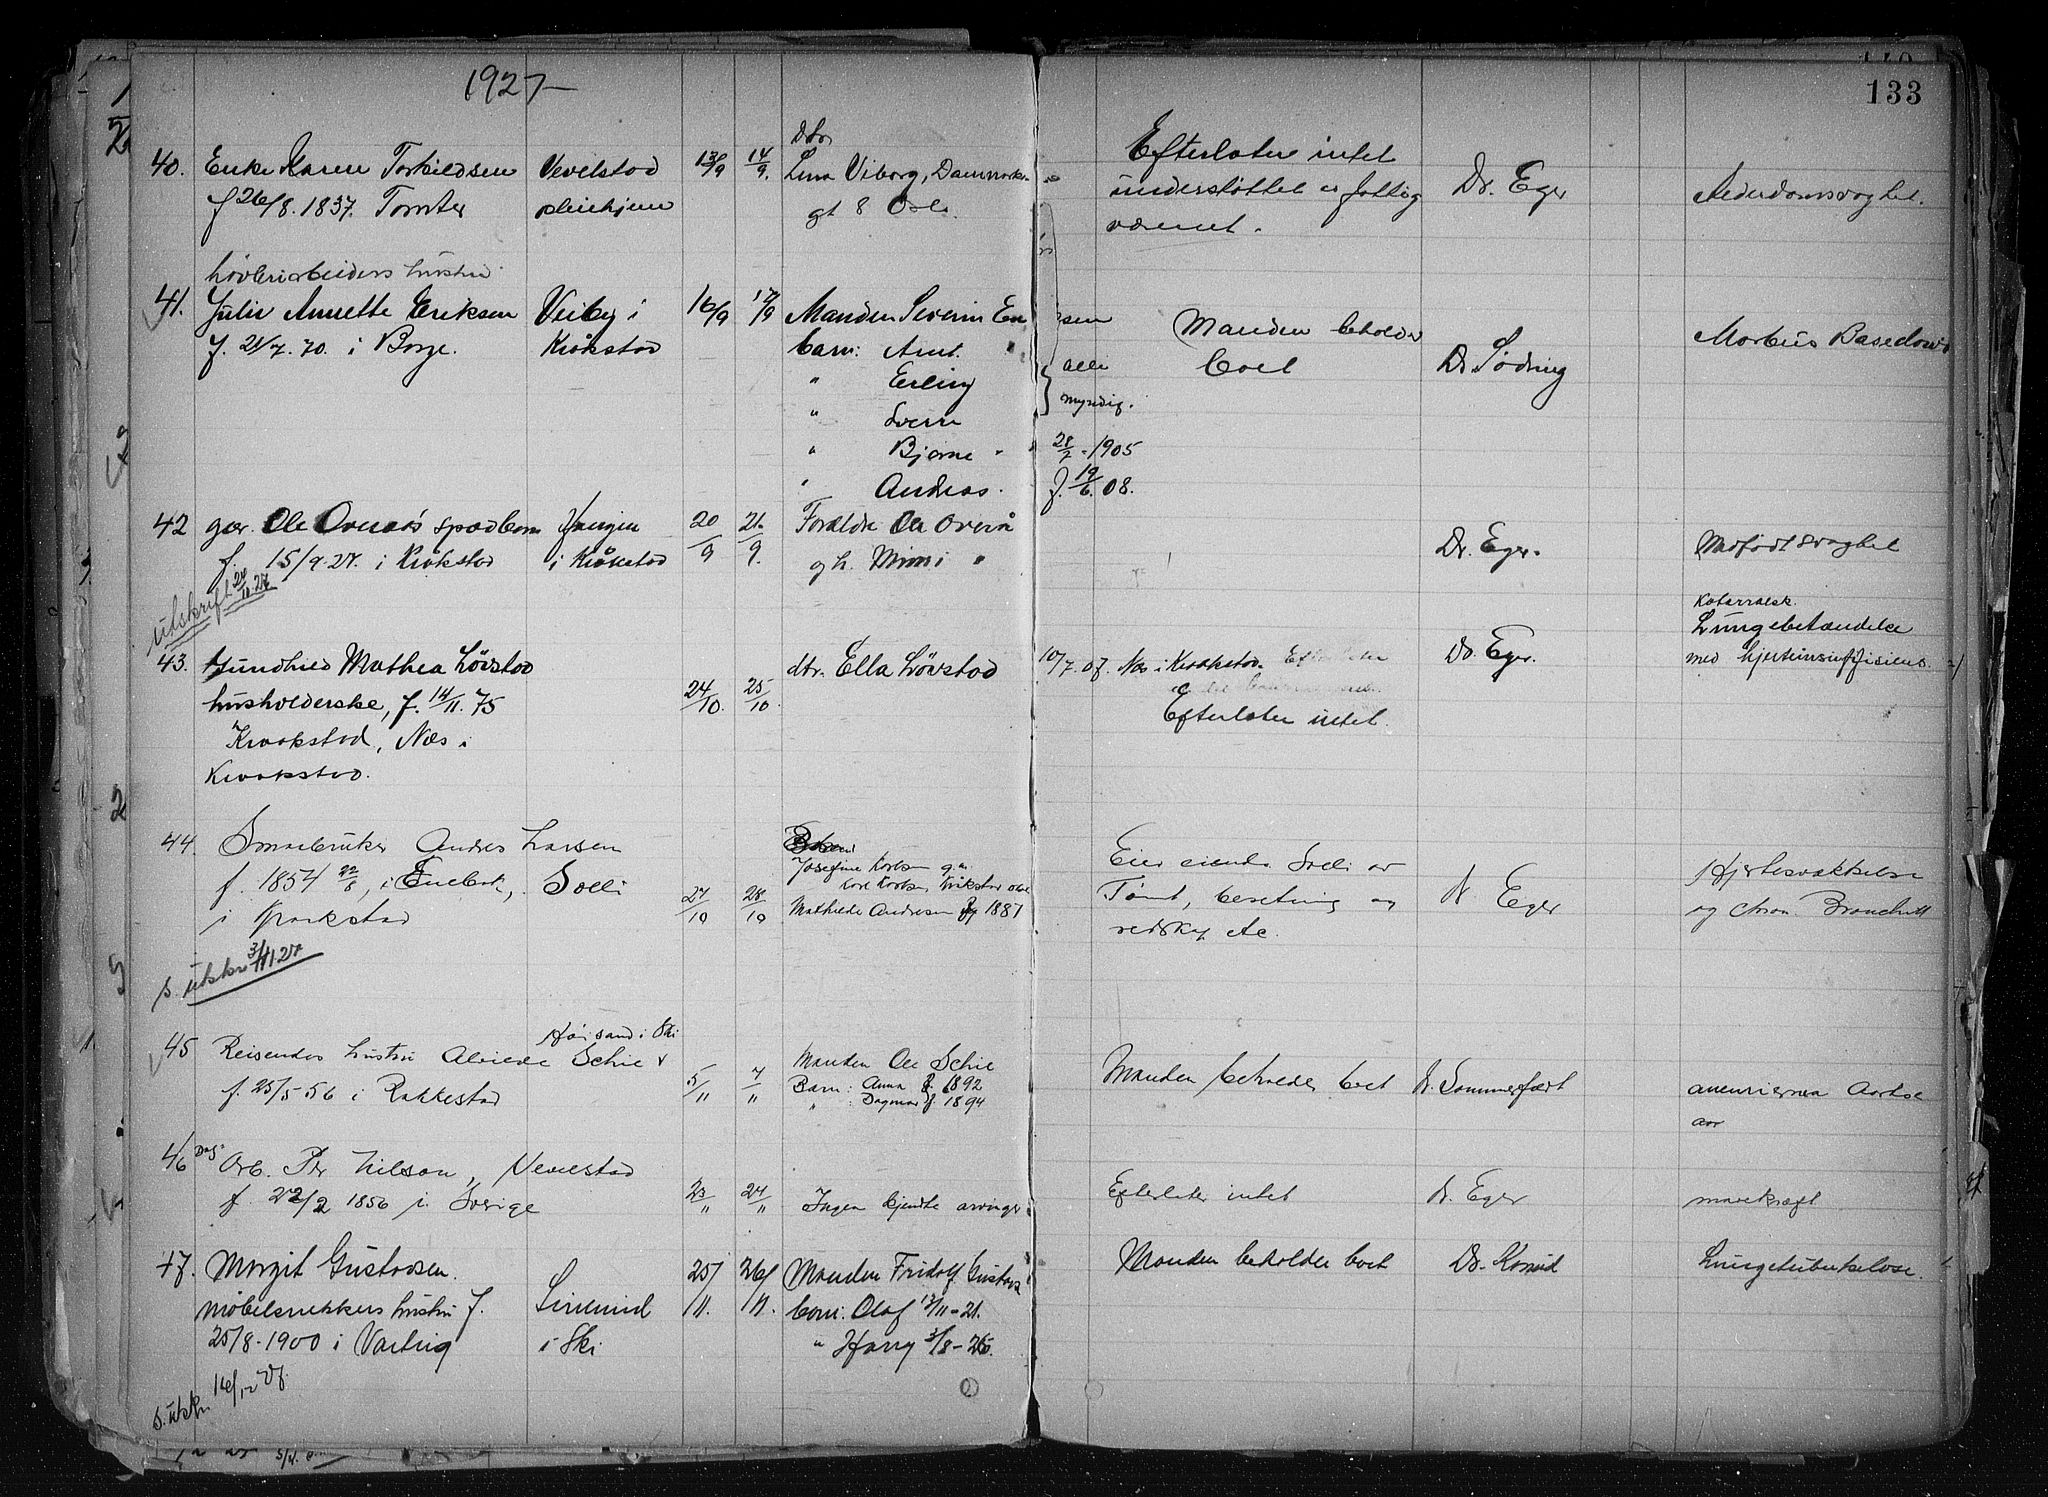 1927
133
40. Enke Karen Torkildsen Vevelstad 13/9 14/9. Dtr. Lina Viborg, Danmarks- Efterlater intet Dr. Eger Alderdomssvaghet.
f 26/8. 1837. Tomter pleiehjem gt 8 Oslo. understøttet av fattig
væsenet.
høvleriarbeiders hustru
41. Julie Annette Eriksen Veiby i 16/9 17/9 Manden Severin Eriksen Manden beholder Dr. Sødring Morbus Basedowi
f. 21/7. 70. i Borge. Kråkstad barn: Arnt. alle boet
" Erling myndig.
" Sverre
" Bjarne " 28/7 - 1905
" Andreas. f. 19/6. 08.
42 går. Ole Overås spædbarn Haugen 20/9 21/9. Forældre Ole Overå Dr. Eger. Medfødt svaghet
f. 15/9. 27. i Kråkstad i Kråkstad gh. Mimi "
utskrift 24/11. 27
Katarralsk.
Lungebetændelse
43. Gundhild Mathea Løvstad 24/10 25/10 dtr. Ella Løvstad 10/7. 07. Næs i Kraakstad. Efterlater Dr. Eger. med hjerteinsuffisiens.
husholderske, f. 14/11. 75 Efterlater intet.
Kraakstad, Næs i
Kraakstad.
44. Smaabruker Andres Larsen
f. 1854 22/8, i Enebak, Solli 27/10 28/10 Josefine Karlsen g.m. Eier eiend. Solli av Dr Eger Hjertesvækkelse
i Kraakstad Mathilde Andresen f. 1887 Tomt, besetning og og chron. Bronchitt
redskap etc.
s. utskr. 3/11. 27
45 Reisendes hustru Alvilde Schie Høisand i Ski 5/11 7/11 Manden Ole Schie Manden beholder boet Dr. Sommerfeldt aneurisma Aortae
f. 25/5 56 i Rakkestad Barn: Anna f. 1892
" : Dagmar f. 1894
46 Dags Arb. Per Nilsson, Vevelstad
f. 22/2 1856 i Sverige 23/11 24/11 Ingen kjendte arvinger Efterlater intet Dr. Eger
47. Margit Gustavsen. 25/11. 26/11. Manden Fridolf Gustavs Manden beholder boet Dr. Lungetuberkulose.
møbelsnekkers hustru f. barn: Olaf 13/11 - 21.
25/8 - 1900 i Varteig i Ski " Harry 3/8 - 25.
s. utskr. 16/12 27.